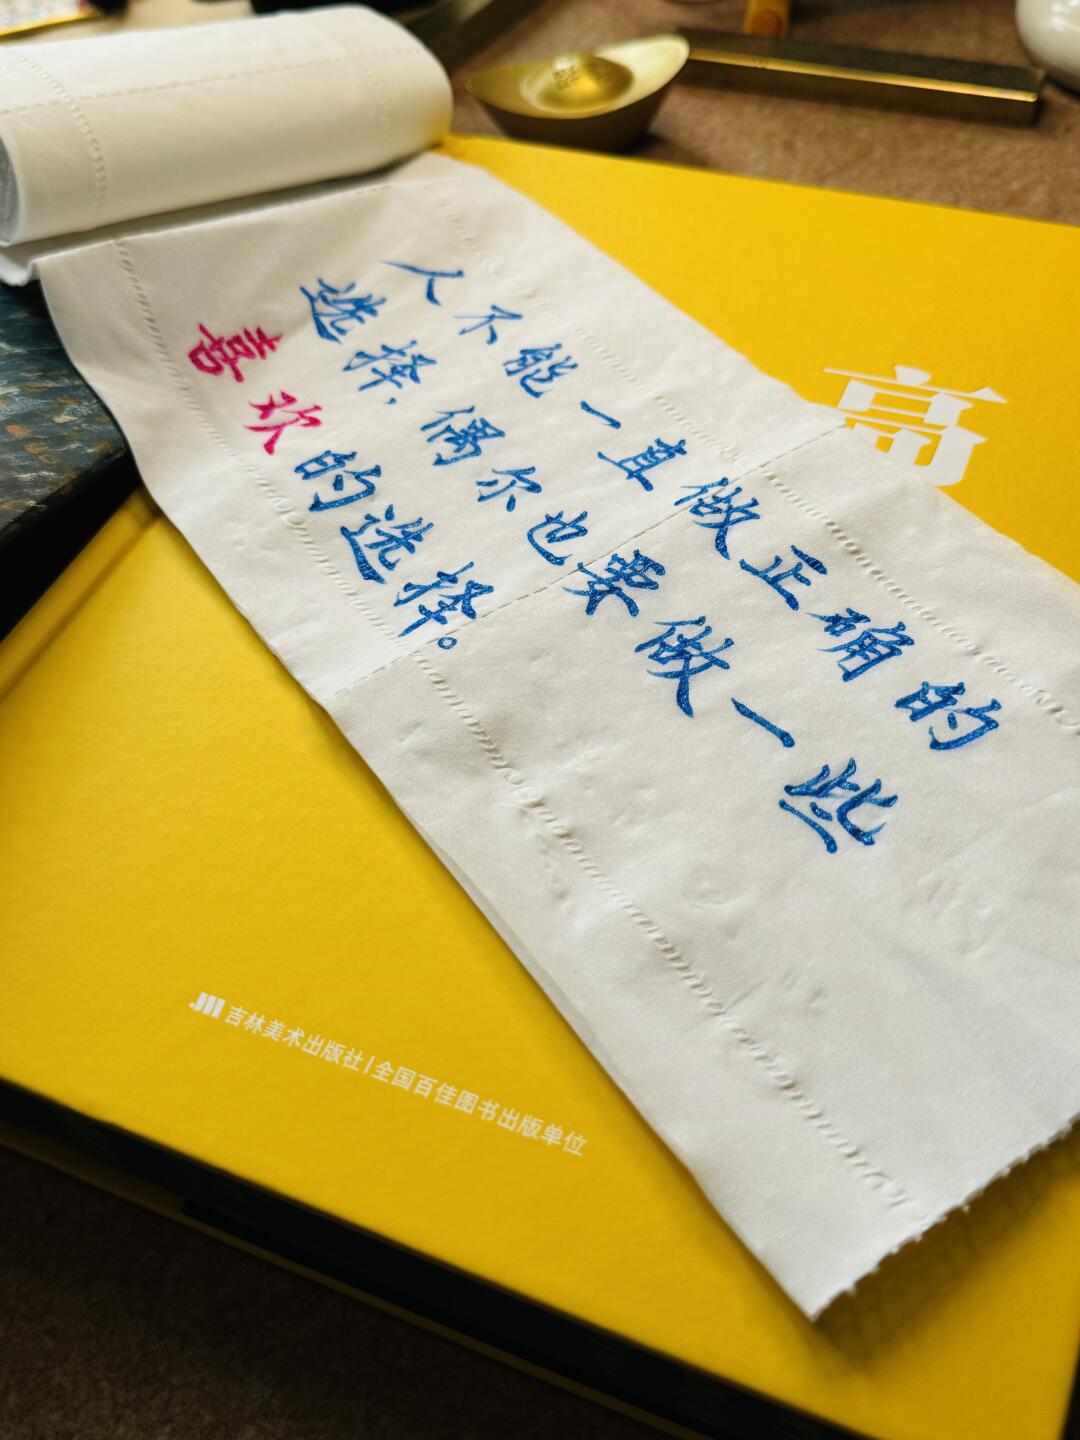 人不能一直做正确的
选择,偶尔也要做一些
喜欢的选择。
高
吉林美术出版社|全国百佳图书出版单位